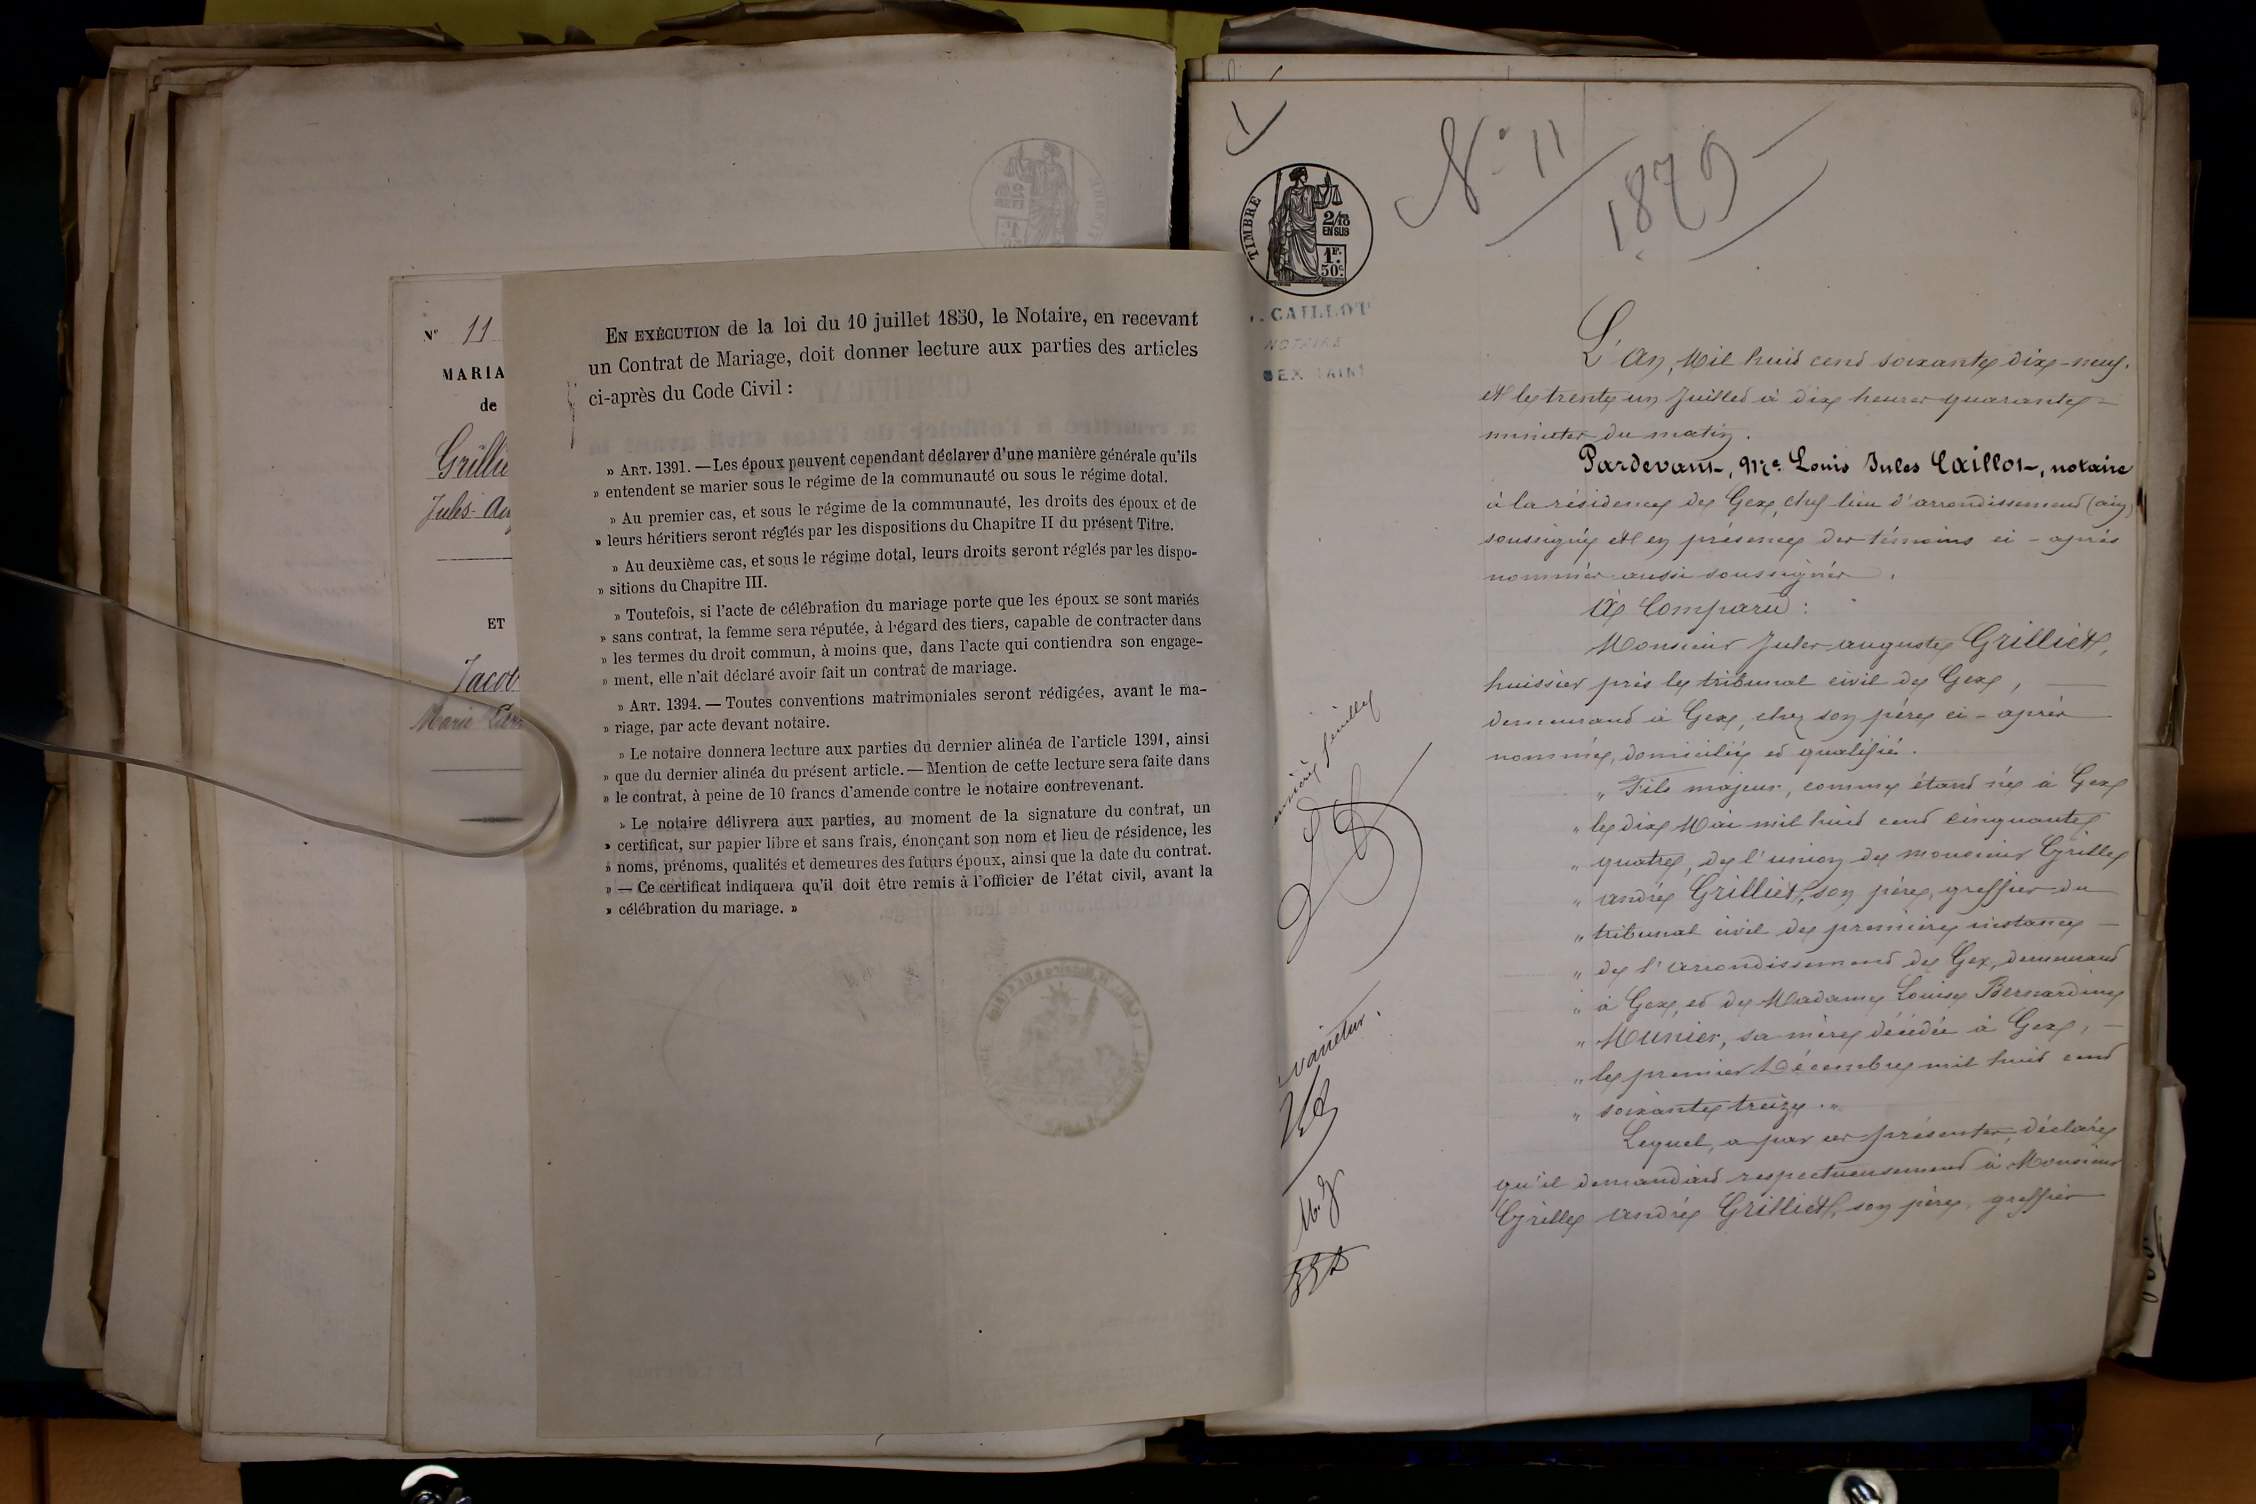 N° 11
MARIA
de
Grillie
Jules-Aug
ET
Jacot
Marie
EN EXÉCUTION de la loi du 10 juillet 1850, le Notaire, en recevant
un Contrat de Mariage, doit donner lecture aux parties des articles
ci-après du Code Civil :
» ART. 1391. — Les époux peuvent cependant déclarer d'une manière générale qu'ils
» entendent se marier sous le régime de la communauté ou sous le régime dotal.
» Au premier cas, et sous le régime de la communauté, les droits des époux et de
» leurs héritiers seront réglés par les dispositions du Chapitre II du présent Titre.
» Au deuxième cas, et sous le régime dotal, leurs droits seront réglés par les dispo-
» sitions du Chapitre III.
» Toutefois, si l'acte de célébration du mariage porte que les époux se sont mariés
» sans contrat, la femme sera réputée, à l'égard des tiers, capable de contracter dans
» les termes du droit commun, à moins que, dans l'acte qui contiendra son engage-
» ment, elle n'ait déclaré avoir fait un contrat de mariage.
» ART. 1394. — Toutes conventions matrimoniales seront rédigées, avant le ma-
» riage, par acte devant notaire.
» Le notaire donnera lecture aux parties du dernier alinéa de l'article 1391, ainsi
» que du dernier alinéa du présent article. — Mention de cette lecture sera faite dans
» le contrat, à peine de 10 francs d'amende contre le notaire contrevenant.
» Le notaire délivrera aux parties, au moment de la signature du contrat, un
» certificat, sur papier libre et sans frais, énonçant son nom et lieu de résidence, les
» noms, prénoms, qualités et demeures des futurs époux, ainsi que la date du contrat.
» — Ce certificat indiquera qu'il doit être remis à l'officier de l'état civil, avant la
» célébration du mariage. »
N° 11
1879
TIMBRE
2/10
EN SUS
1F.
50c.
. CAILLOT
NOTAIRE
GEX (AIN)
L'An, Mil huit cent soixante dix-neuf.
et le trente un Juillet à dix heures quarante
minutes du matin.
Pardevant, Me. Louis Jules Caillot, notaire
à la résidence de Gex, chef lieu d'arrondissement (ain)
soussigné et en présence des témoins ci-après
nommés aussi soussignés.
A Comparu :
Monsieur Jules-auguste Grilliet,
huissier près le tribunal civil de Gex,
demeurant à Gex, chez son père ci-après
nommé, domicilié et qualifié.
„ Fils majeur, comme étant né à Gex
„ le dix Mai mil huit cent cinquante
„ quatre, de l'union de monsieur Cyrille
„ andré Grilliet, son père, greffier du
„ tribunal civil de première instance
„ de l'arrondissement de Gex, demeurant
„ à Gex, et de Madame Louise Bernardine
„ Munier, sa mère décédée à Gex,
„ le premier Décembre mil huit cent
„ soixante treize. „
Lequel, a par ces présentes, déclaré
qu'il demandait respectueusement à Monsieur
Cyrille andré Grilliet, son père, greffier
varietur.